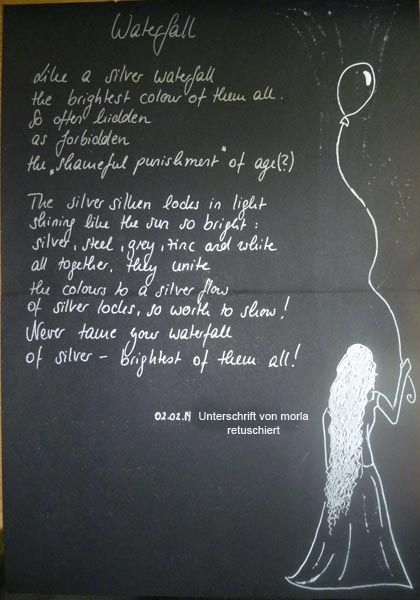 Waterfall
Like a silver waterfall
the brightest colour of them all.
So often hidden
as forbidden
the „shameful punishment" of age(?)
The silver silken locks in light
shining like the sun so bright:
silver, steel, grey, zinc and white
all together, they unite
the colours to a silver flow
of silver locks, so worth to show!
Never tame your waterfall
of silver - brightest of them all!
02.02.14 Unterschrift von morla
retuschiert